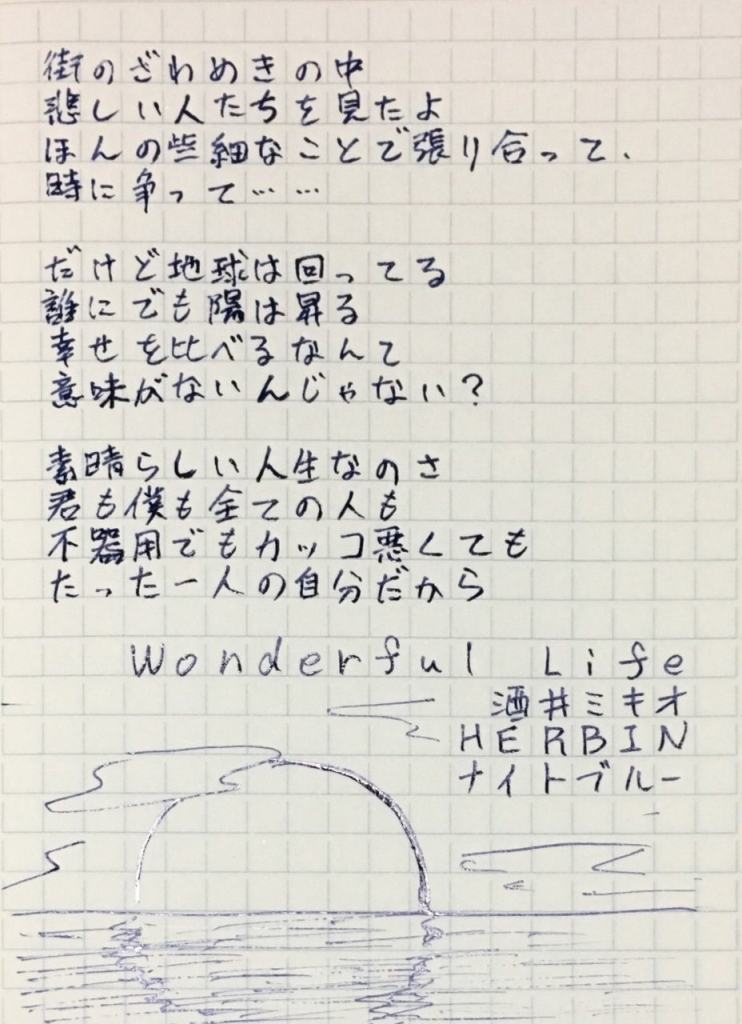 街のざわめきの中
悲しい人たちを見たよ
ほんの些細なことで張り合って、
時に争って……
だけど地球は回ってる
誰にでも陽は昇る
幸せを比べるなんて
意味がないんじゃない?
素晴らしい人生なのさ
君も僕も全ての人も
不器用でもカッコ悪くても
たった一人の自分だから
Wonderful Life
酒井ミキオ
HERBIN
ナイトブルー